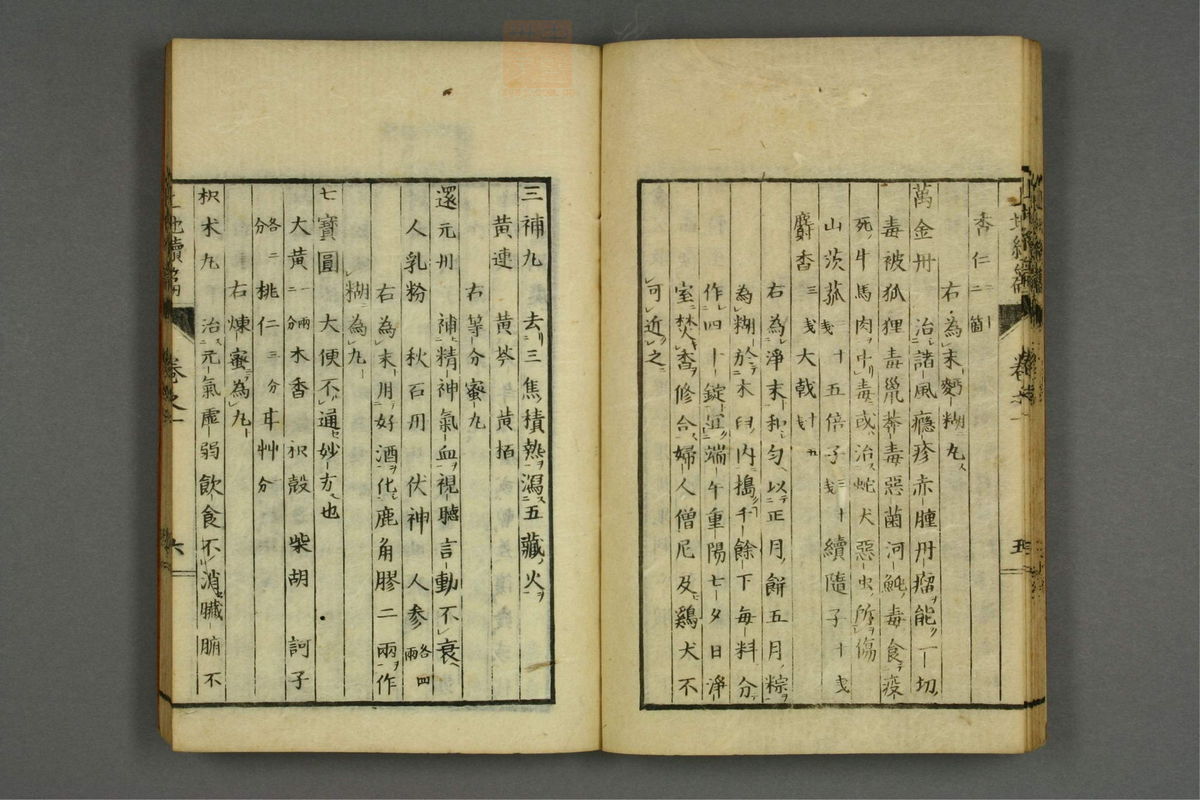 杏仁二箇
右為末麪糊丸
萬金丹 治諸風癮疹赤腫丹瘤能一切
毒被狐狸毒鼠莽毒惡菌河魨毒食疫
死牛馬肉中毒或治蛇犬惡虫所傷
山茨菰 五倍子 續隨子十
麝香三 大戟
右為淨末和勻以正月餅五月粽
為糊於木臼內搗千餘下每料分
作四十錠宜端午重陽七夕日淨
室焚香修合婦人僧尼及鷄犬不
可近之
卷之 五
三補丸 去三焦積熱瀉五藏火
黃連 黃芩 黃栢
右等分蜜丸
還元丹 補精神氣血視聽言動不衰
人乳粉 秋石丹 伏神 人参各四兩
右為末用好酒化鹿角膠二兩作
糊為丸
七寶圓 大便不通妙方也
大黃一兩 木香 枳殼 柴胡 訶子
各二分 桃仁三分 草分
右煉蜜為丸
枳朮丸 治元氣虛弱飲食不消臟腑不
卷之 六